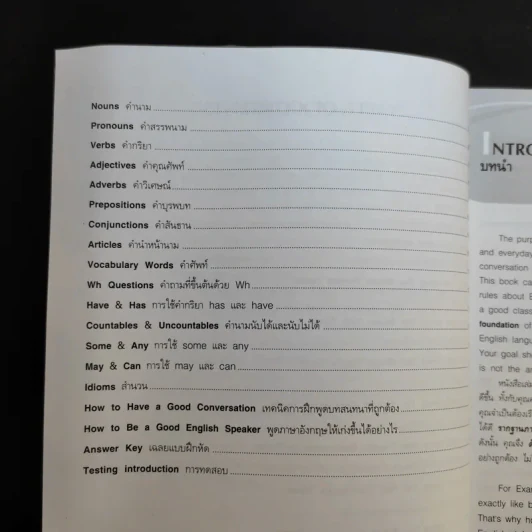 Nouns คำนาม
Pronouns คำสรรพนาม
Verbs คำกริยา
Adjectives คำคุณศัพท์
Adverbs คำวิเศษณ์
Prepositions คำบุรพบท
Conjunctions คำสันธาน
Articles คำนำหน้านาม
Vocabulary Words คำศัพท์
Wh Questions คำถามที่ขึ้นต้นด้วย Wh
Have & Has การใช้คำกริยา has และ have
Countables & Uncountables คำนามนับได้และนับไม่ได้
Some & Any การใช้ some และ any
May & Can การใช้ may และ can
Idioms สำนวน
How to Have a Good Conversation เทคนิคการฝึกพูดบทสนทนาที่ถูกต้อง
How to Be a Good English Speaker พูดภาษาอังกฤษให้เก่งขึ้นได้อย่างไร
Answer Key เฉลยแบบฝึกหัด
Testing introduction การทดสอบ
INTRO
บทนำ
The purp
and everyday
conversation
This book ca
rules about E
a good class
foundation of
English langu
Your goal sh
is not the a
หนังสือเล่ม
ดีขึ้น ทั้งกับคุณ
คุณจำเป็นต้อง
ได้ดี รากฐานภา
ดังนั้น คุณจึง
อย่างถูกต้อง ไม่
For Exa
exactly like b
That's why h